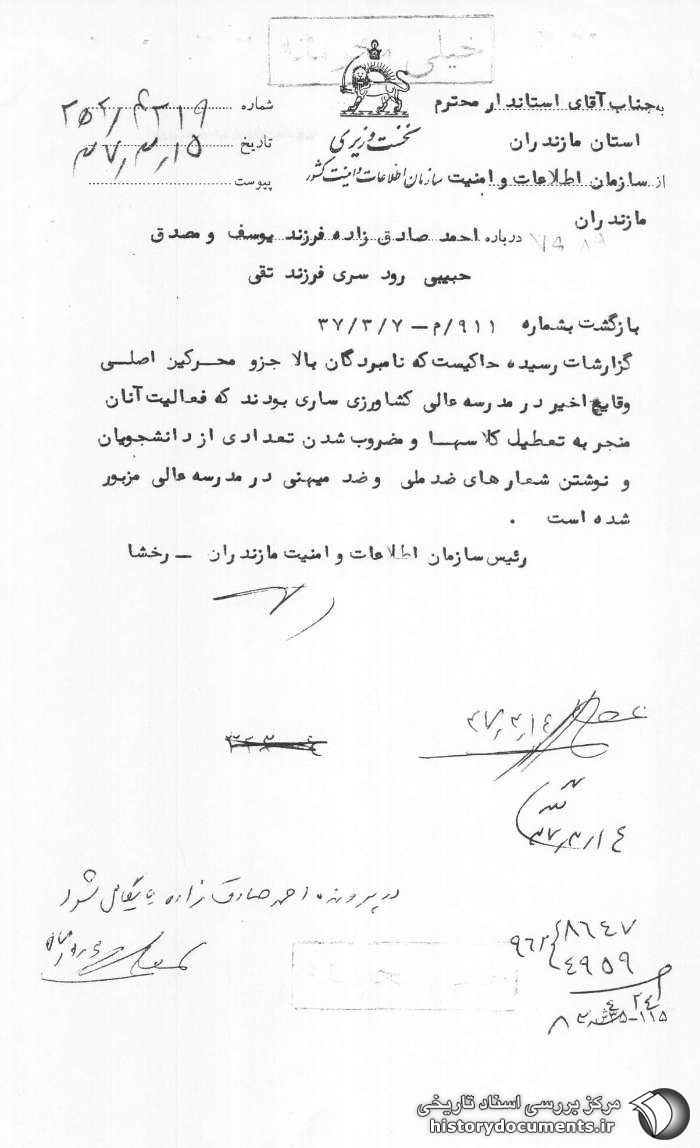 خیلی محرمانه
به جناب آقای استاندار محترم
استان مازندران
از سازمان اطلاعات و امنیت
مازندران
نخست وزیری
سازمان اطلاعات و امنیت کشور
شماره
تاریخ ۳۷/۳/۱۵
پیوست
درباره احمد صادق زاده فرزند یوسف و مصدق
حبیبی رود سری فرزند تقی
بازگشت بشماره ۹۱۱/م-۳۷/۳/۷
گزارشات رسیده حاکیست که نامبردگان بالا جزو محرکین اصلی
وقایع اخیر در مدرسه عالی کشاورزی ساری بودند که فعالیت آنان
منجر به تعطیل کلاسها و مضروب شدن تعدادی از دانشجویان
و نوشتن شعارهای ضد ملی و ضد میهنی در مدرسه عالی مزبور
شده است .
رئیس سازمان اطلاعات و امنیت مازندران - رخشا
۳۷/۳/۱۴
۳۷/۳/۱۴
در پرونده احمد صادق زاده بایگانی شود
۸۶۴۷
۴۹۵۹
مرکز بررسی اسناد تاریخی
historydocuments.ir